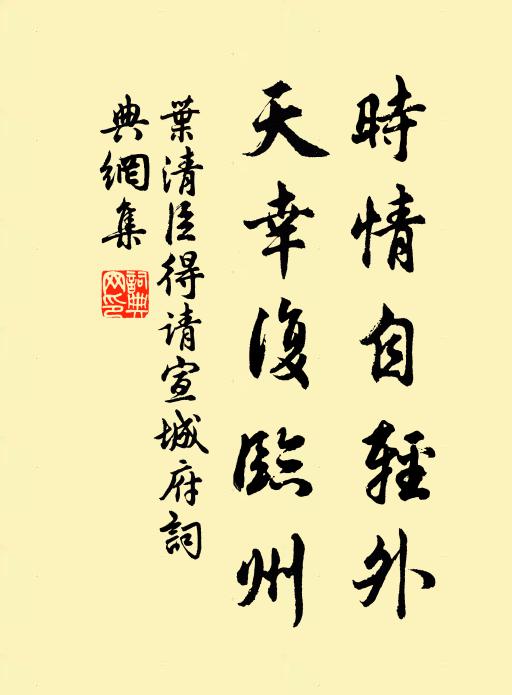 時情自輕外
天幸復臨州
葉清臣得請宣城府詞
典網集
詞典
网印